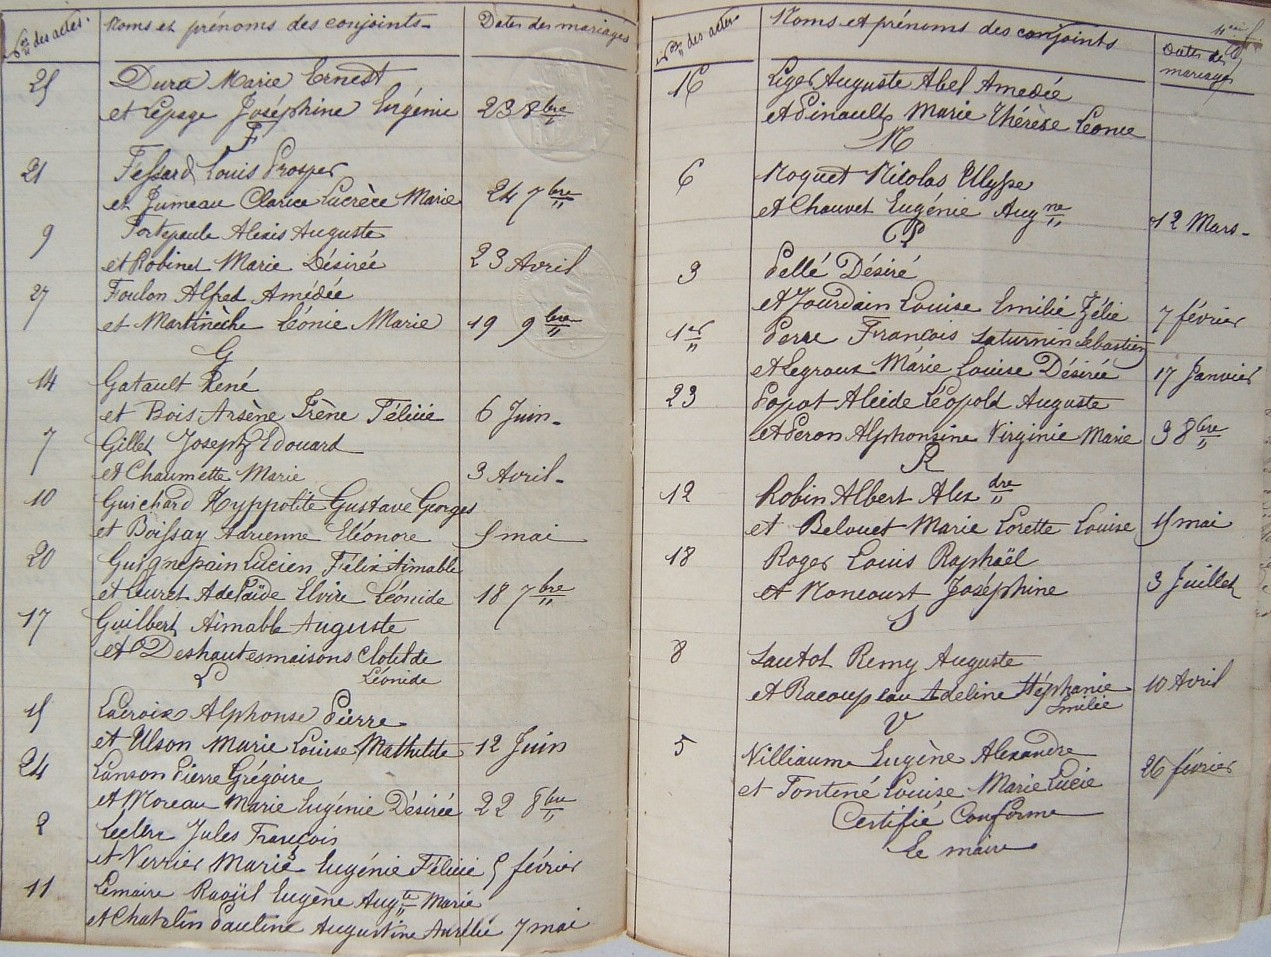 Nos des actes. Noms et prénoms des conjoints Dates des mariages
25 Dura Marie Ernest
et Lepage Joséphine Eugénie 23 8bre
F
21 Fessard Louis Prosper
et Jumeau Clarice Lucrèce Marie 24 7bre
9 Fortepaule Alexis Auguste
et Robinet Marie Désirée 23 Avril
27 Foulon Alfred Amédée
et Martinèche Léonie Marie 19 9bre
G
14 Gatault René
et Bois Arsène Irène Félicie 6 Juin
7 Gillet Joseph Edouard
et Chaumette Marie 3 Avril
10 Guichard Hyppolite Gustave Georges
et Boissay Adrienne Eléonore 5 mai
20 Guignepain Lucien Félix Aimable
et Leuret Adelaïde Elvire Léonide 18 7bre
17 Guilbert Aimable Auguste
et Deshautesmaisons Clotilde
Léonide
L
15 Lacroix Alphonse Pierre
et Ulson Marie Louise Mathilde 12 Juin
24 Lanson Pierre Grégoire
et Moreau Marie Eugenie Désirée 22 8bre
2 Leclerc Jules François
et Verrier Marie Eugénie Félicie 5 février
11 Lemaire Raoül Eugène Augte Marie
et Chatelin Pauline Augustine Aurélie 7 mai
Nos des actes. Noms et prénoms des conjoints Dates des
mariages
16 Liger Auguste Abel Amedée
et Pinault Marie Thérèse Léonie
N
6 Noquet Nicolas Ulysse
et Chauvet Eugénie Augne 12 Mars
P
3 Pellé Désiré
et Jourdain Louise Emilie Zélie 7 février
1er Perre François Saturnin Sebastien
et Legroux Marie Louise Désirée 17 Janvier
23 Popot Alcide Léopold Auguste
et Peron Alphonsine Virginie Marie 3 8bre
R
12 Robin Albert Alexdre
et Belouet Marie Lorette Louise 15 mai
18 Roger Louis Raphaël
et Noncourt Joséphine 3 Juillet
S
8 Sautot Remy Auguste
et Racoupeau Adeline Stéphanie 10 Avril
Emilie
V
5 Villiaume Eugène Alexandre
et Fontené Louise Marie Lucie 26 février
Certifié Conforme
Le maire